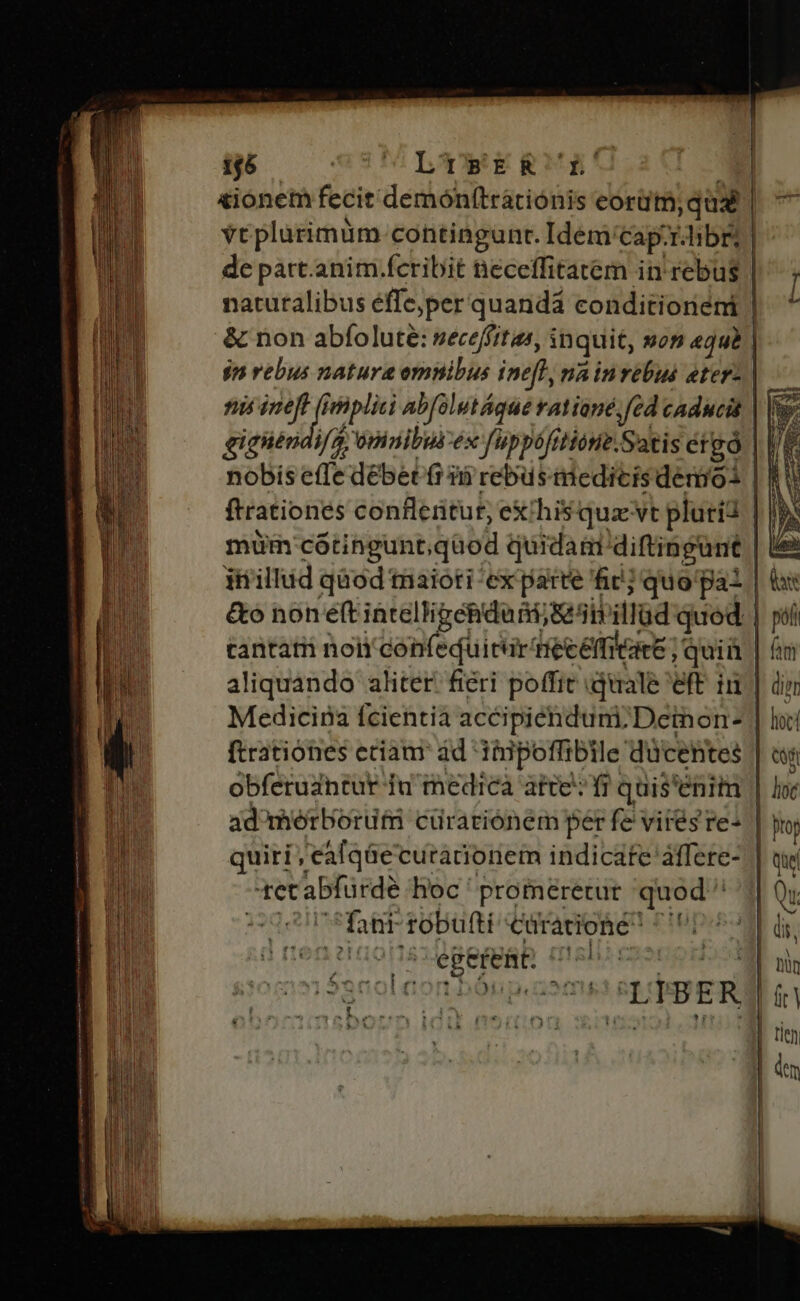 156 LIBER I.
tionem fecit demonſtrationis eorum, quæ
vt plurimùm contingunt. Idem cap. 1. libri
de part. anim. ſcribit neceſſitatem in rebus
naturalibus eſſe, per quandā conditionem
& non abſolutè: neceſſitas, inquit, non æquè
in rebus natura omnibus ineſt, nā in rebus æter-
nis ineſt ſimplici abſolutáque ratione, ſed caducis
gignēndiſq́; omnibus ex ſuppoſitione. Satis ergò
nobis eſſe debet ſi in rebus medicis demō-
ſtrationes conflentur, ex his quæ vt pluri-
mùm cōtingunt, quod quidam diſtingunt
in illud quod maiori ex parte fit, quo pa-
cto non eſt intelligendum, & in illud quod
tantam non conſequitur neceſſitatē, quin
aliquando aliter fieri poſſit quale eſt in
Medicina ſcientia accipiendum. Demon-
ſtrationes etiam ad impoſſibile ducentes
obſeruantur in medica arte: ſi quis enim
ad morborum curationem per ſe vires re-
quiri, eaſque curationem indicare aſſere-
ret abſurdè hoc promeretur quod
ſani robuſti curatione
egerent.
LIBER